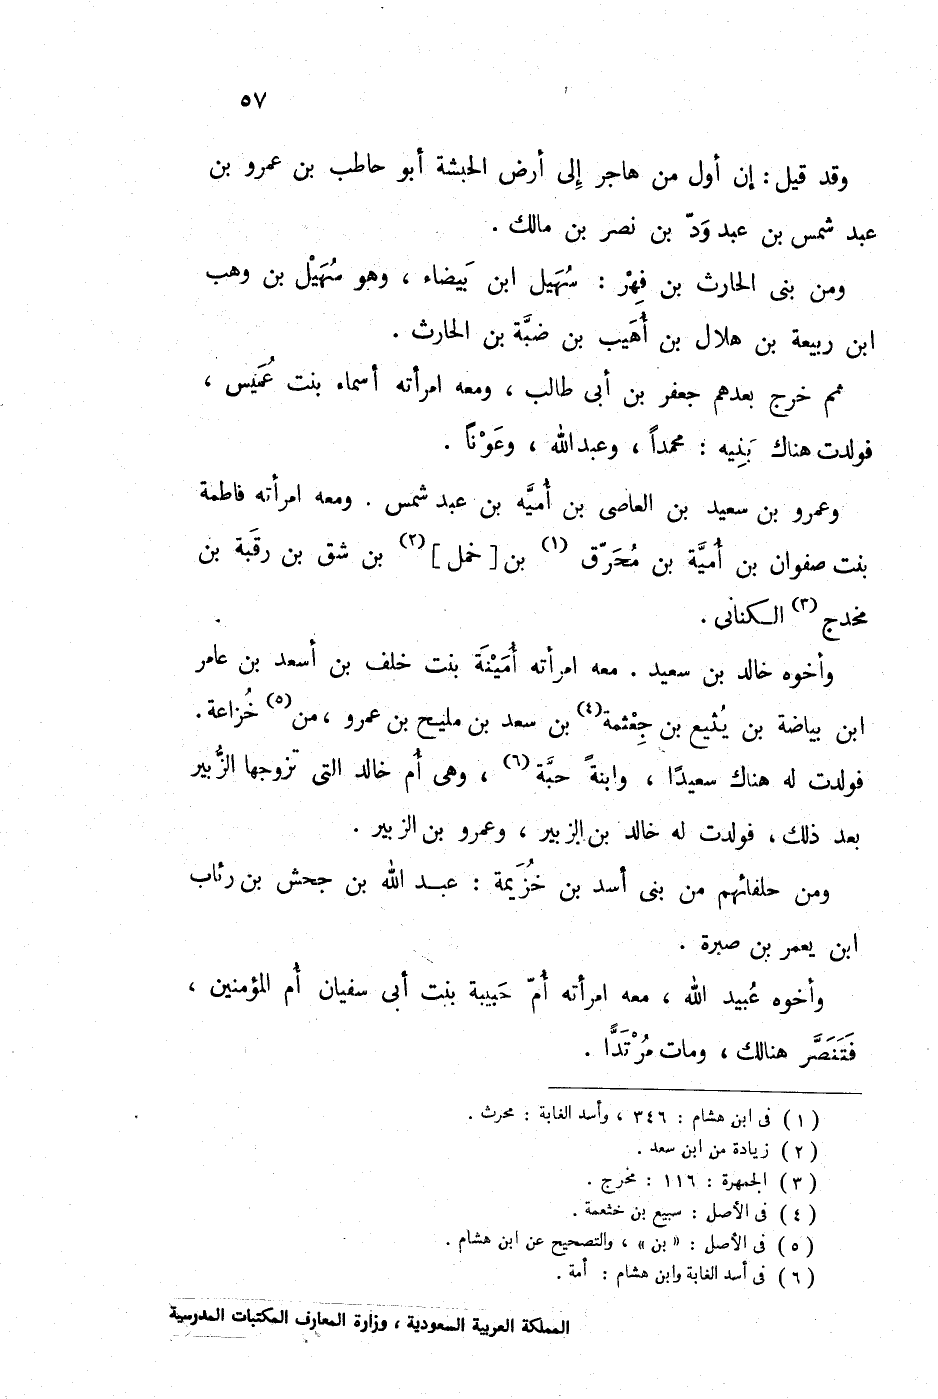 ٥٧
وقد قيل : إن أول من هاجر إلى أرض الحبشة أبو حاطب بن عمرو بن
عبد شمس بن عبد وَدّ بن نصر بن مالك .
ومن بنى الحارث بن فِهِرْ : سُهَيل ابن بَيضاء ، وهو سُهَيْل بن وهب
ابن ربيعة بن هلال بن أُهَيب بن ضبَّة بن الحارث .
ثم خرج بعدهم جعفر بن أبى طالب ، ومعه امرأته أسماء بنت عُمَيس ،
فولدت هناك بَنِيه : محمداً ، وعبد الله ، وعَوْناً .
وعمرو بن سعيد بن العاصى بن أُميَّه بن عبد شمس . ومعه امرأته فاطمة
بنت صفوان بن أُميَّة بن مُحَرّق (١) بن [ خمل ] (٢) بن شق بن رقبة بن
مخدج (٣) الكنانى .
وأخوه خالد بن سعيد . معه امرأته أُمَيْنَة بنت خلف بن أسعد بن عامر
ابن بياضة بن يُثيع بن جِعْثمة (٤) بن سعد بن مليح بن عمرو ، من (٥) خُزاعة .
فولدت له هناك سعيدًا ، وابنةً حبَّة (٦) ، وهى أُم خالد التى تزوجها الزُّبير
بعد ذلك ، فولدت له خالد بن الزبير ، وعمرو بن الزبير .
ومن حلفائهم من بنى أسد بن خُزَيمة : عبد الله بن جحش بن رئاب
ابن يعمر بن صبرة .
وأخوه عُبيد الله ، معه امرأته أُمّ حَبيبة بنت أبى سفيان أُم المؤمنين ،
فَتَنَصَّر هنالك ، ومات مُرْتَدًّا .
(١) فى ابن هشام : ٣٤٦ ، وأسد الغابة : محرث .
(٢) زيادة من ابن سعد .
(٣) الجمهرة : ١١٦ : مخرج .
(٤) فى الأصل : سبيع بن خثعمة .
(٥) فى الأصل : « بن » ، والتصحيح عن ابن هشام .
(٦) فى أسد الغابة وابن هشام : أمة .
المملكة العربية السعودية ، وزارة المعارف المكتبات المدرسية